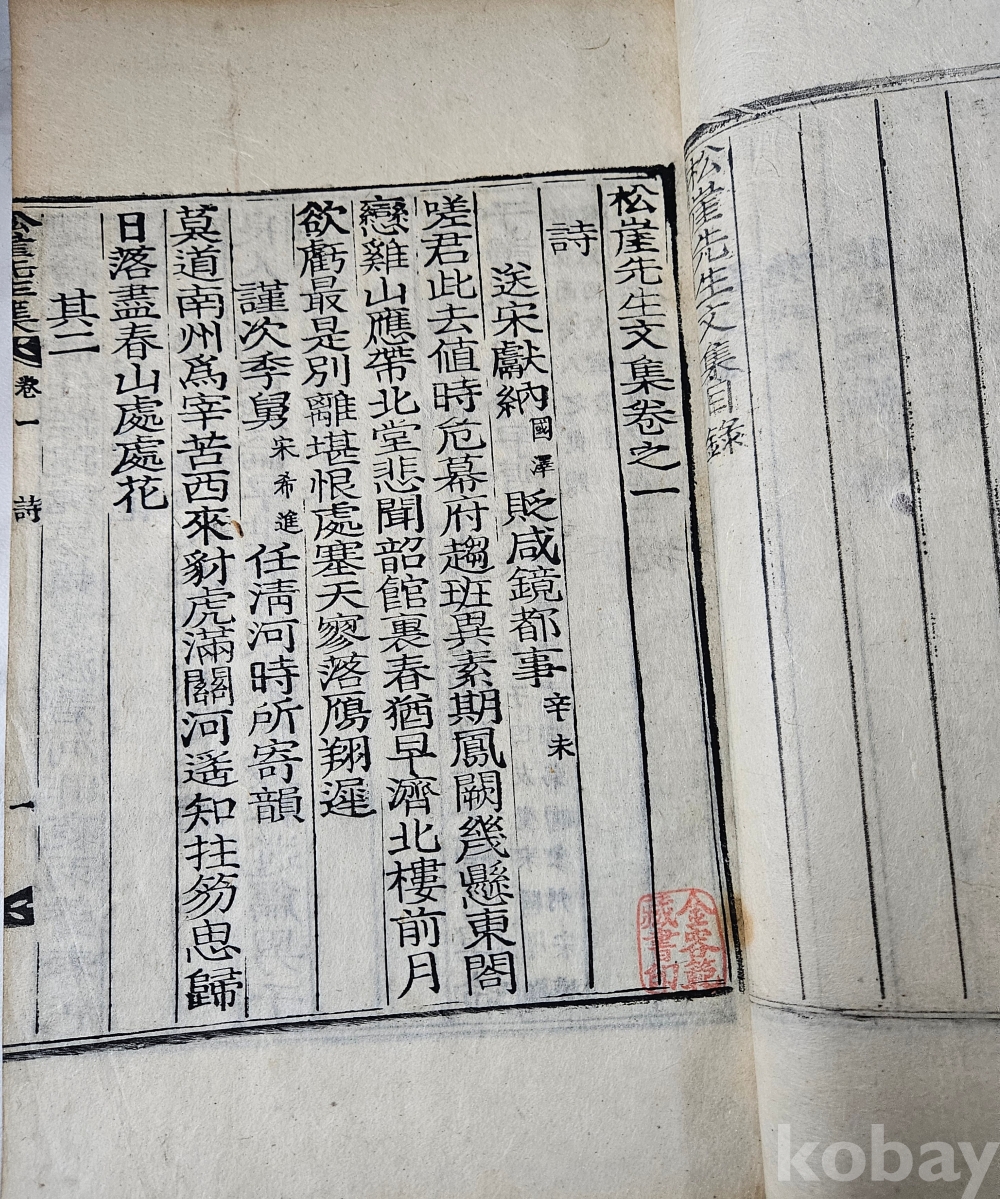 松崖先生文集目錄
松崖先生文集卷之一
詩
送宋獻納國澤貶咸鏡都事辛未
嗟君此去値時危幕府趨班異素期鳳闕幾懸東閤
戀雞山應帶北堂悲聞韶館裏春猶早濟北樓前月
欲虧最是別離堪恨處塞天寥落鴈翔遲
謹次季舅宋希進任淸河時所寄韻
莫道南州爲宰苦西來豺虎滿關河遥知拄笏思歸
日落盡春山處處花
其二
松崖先生集
卷一
詩
一
藏書印
kobay